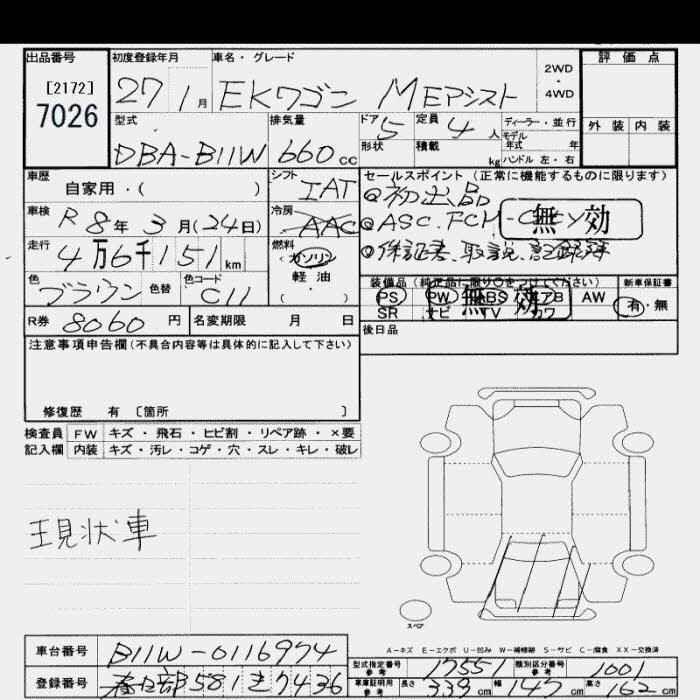 出品番号 初度登録年月 車名・グレード 評価点
[2172] 27 1月 EKワゴン MEアシスト 2WD・4WD
7026 型式 排気量 ドア 5 定員 4人 ディーラー・並行 外装 内装
DBA-B11W 660cc 形状 積載 kg モデル年式 年 ハンドル 左・右
車歴 自家用・( ) シフト IAT セールスポイント(正常に機能するものに限ります)
◎初出品
車検 R8年3月(24日) 冷房 AAC ◎ASC.FCM- 無効
走行 4万6千151km 燃料 ガソリン ◎保証書.取説.記録簿
軽油
( )
色 ブラウン 色替 色コード C11 装備品(純正品に限り○をつけてください) 新車保証書
PS PW ABS エアB AW 有・無
SR ナビ TV カワ 無効
R券 8060円 名変期限 月 日 後日品
注意事項申告欄(不具合内容等は具体的に記入して下さい)
修復歴 有 〔箇所 〕
検査員 FW キズ・飛石・ヒビ割・リペア跡・×要
記入欄 内装 キズ・汚レ・コゲ・穴・スレ・キレ・破レ
現状車
スペア
A-キズ E-エクボ U-凹み W-補修跡 S-サビ C-腐食 XX-交換済
車台番号 B11W-0116974 型式指定番号 参考 17551 類別区分番号 参考 1001
登録番号 春日部581き7436 車庫証明用 参考 長さ 339cm 幅 147cm 高さ 162cm